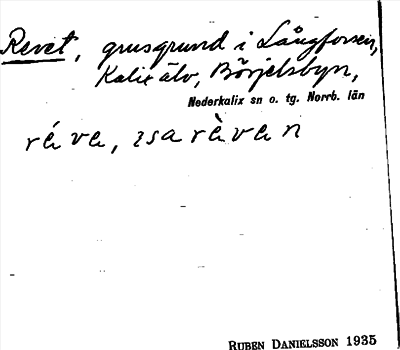 Revet, grusgrund i Långforsen,
Kalix älv, Börjelsbyn,
Nederkalix sn o. tg. Norrb. län
réve, isarèvan
RUBEN DANIELSSON 1935